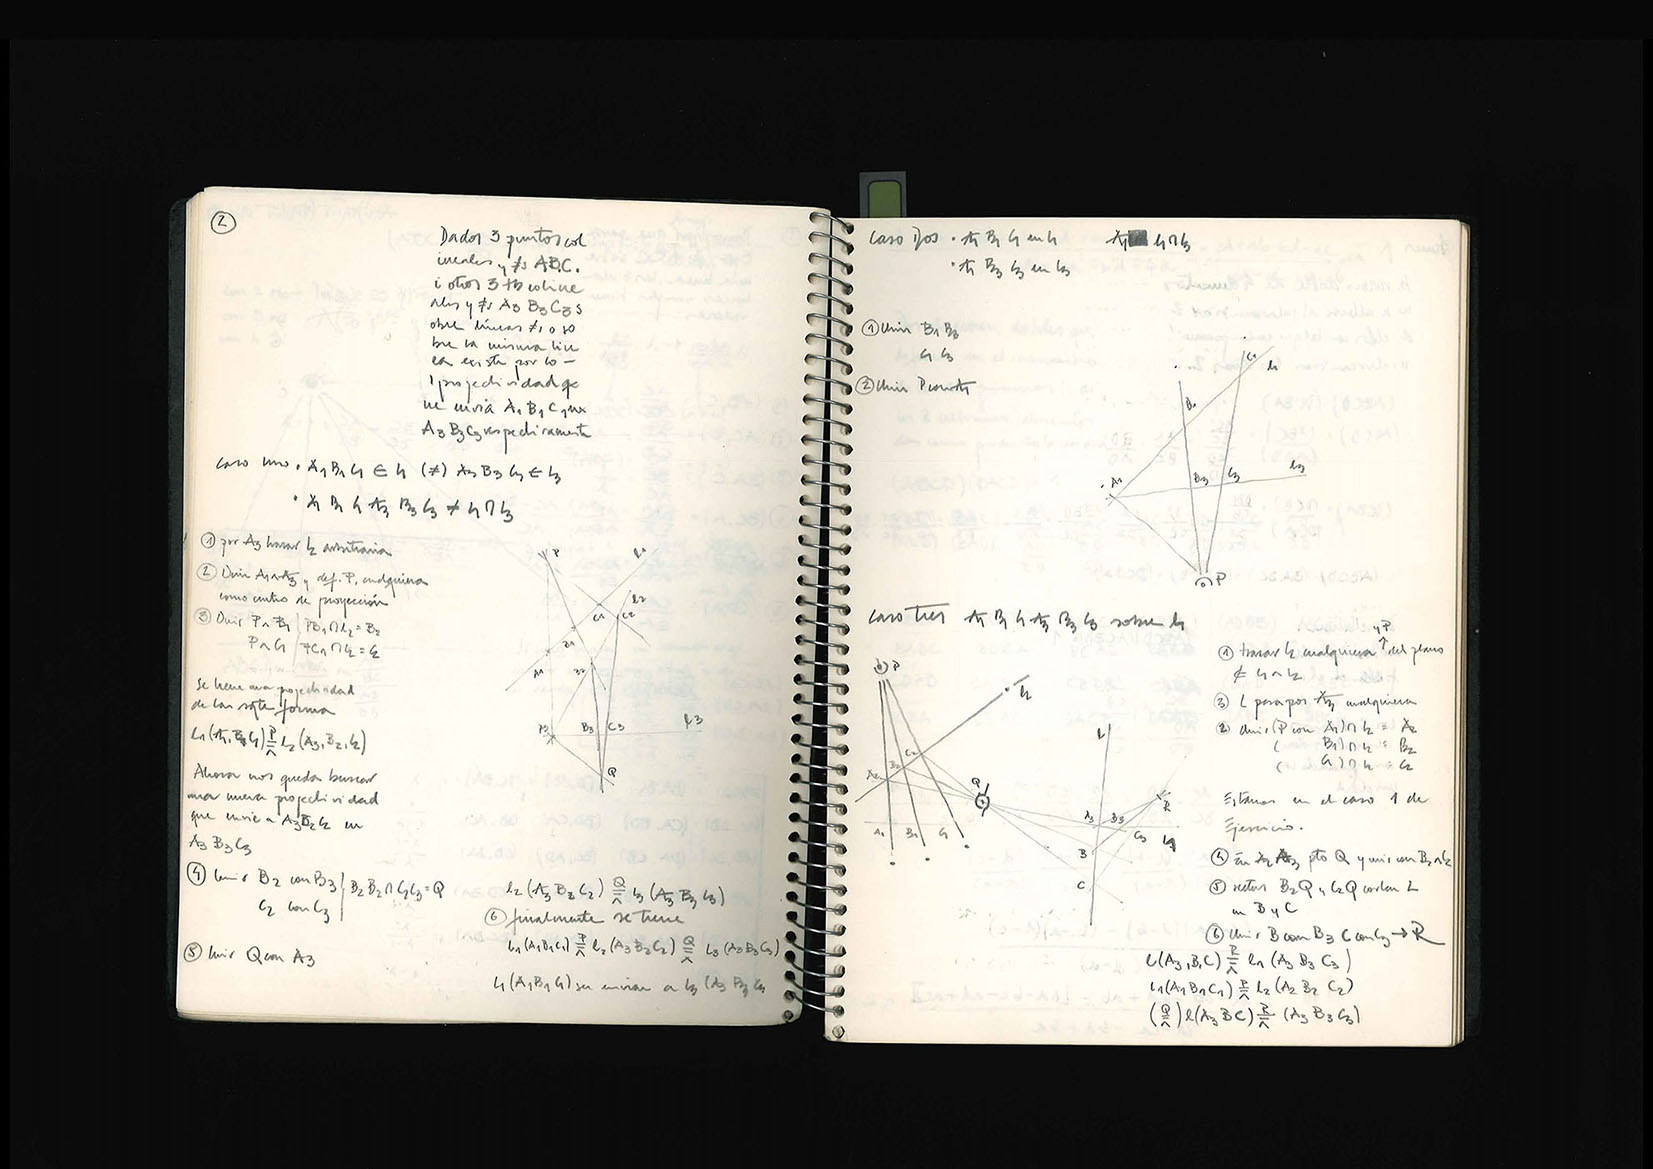 2
Dados 3 puntos col
ineales y ≠s ABC.
i otros 3 tb coline
ales y ≠s A3 B3 C3 s
obre líneas ≠s o so
bre la misma lin
ea existe por lo -
1 projectividad q
ue envía A1 B1 C1 en
A3 B3 C3 respectivamente
caso uno • A1 B1 C1 ∈ l1 (≠) A3 B3 C3 ∈ l3
• A1 B1 C1 A3 B3 C3 ≠ l1 ∩ l3
① por A3 trazar l2 arbitraria
② Unir A1 ∧ A3 y def. P, cualquiera
como centro de proyección
③ Unir P ∧ B1 | PB1 ∩ l2 = B2
P ∧ C1 | PC1 ∩ l2 = C2
se tiene una projectividad
de la sgte forma
l1 (A1, B1 C1) P/⩞ l2 (A3, B2, C2)
Ahora nos queda buscar
una nueva projectividad
que envíe a A3 B2 C2 en
A3 B3 C3
④ unir B2 con B3 | B2 B3 ∩ C2 C3 = Q
C2 con C3
⑤ Unir Q con A3
P
l1
l2
C1
C2
B1
B2
A1
A3
B3
C3
l3
Q
l2 (A3 B2 C2) Q/⩞ l3 (A3 B3 C3)
⑥ finalmente se tiene
l1 (A1 B1 C1) P/⩞ l2 (A3 B2 C2) Q/⩞ l3 (A3 B3 C3)
l1 (A1 B1 C1) se envían a l3 (A3 B3 C3
caso Dos • A1 B1 C1 en l1 A1 l1 ∩ l3
• A1 B3 C3 en l3
① Unir B1 B3
C1 C3
② Unir P con A1
C1
l1
B1
A1
B3
C3
l3
P
caso Tres A1 B1 C1 A3 B3 C3 sobre l1
y P
① trazar l2 cualquiera ↑ del plano
③ L pasa por A3 cualquiera
② unir (P con A1) ∩ l2 = A2
( B1) ∩ l2 = B2
( C1) ∩ l2 = C2
Estamos en el caso 1 de
Ejercicio.
④ A3 pto Q y unir con B2 ∧ C2
⑤ rectas B2Q y C2Q cortan L
en B y C
⑥ Unir B con B3 C con C3 → R
P
l2
C2
B2
A2
A1
B1
C1
Q
l
A3
B3
R
C3
l1
B
C
l(A3, B, C) R/⩞ l1 (A3 B3 C3)
l1 (A1 B1 C1) P/⩞ l2 (A2 B2 C2)
(Q/⩞) l(A3 B C) R/⩞ (A3 B3 C3)